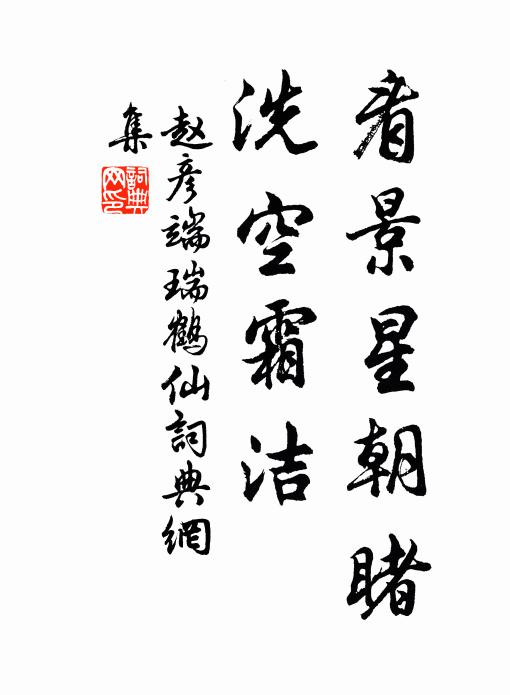 看景星朝睹
洗空霜洁
赵彦端瑞鹤仙詞典網
集
詞典网印